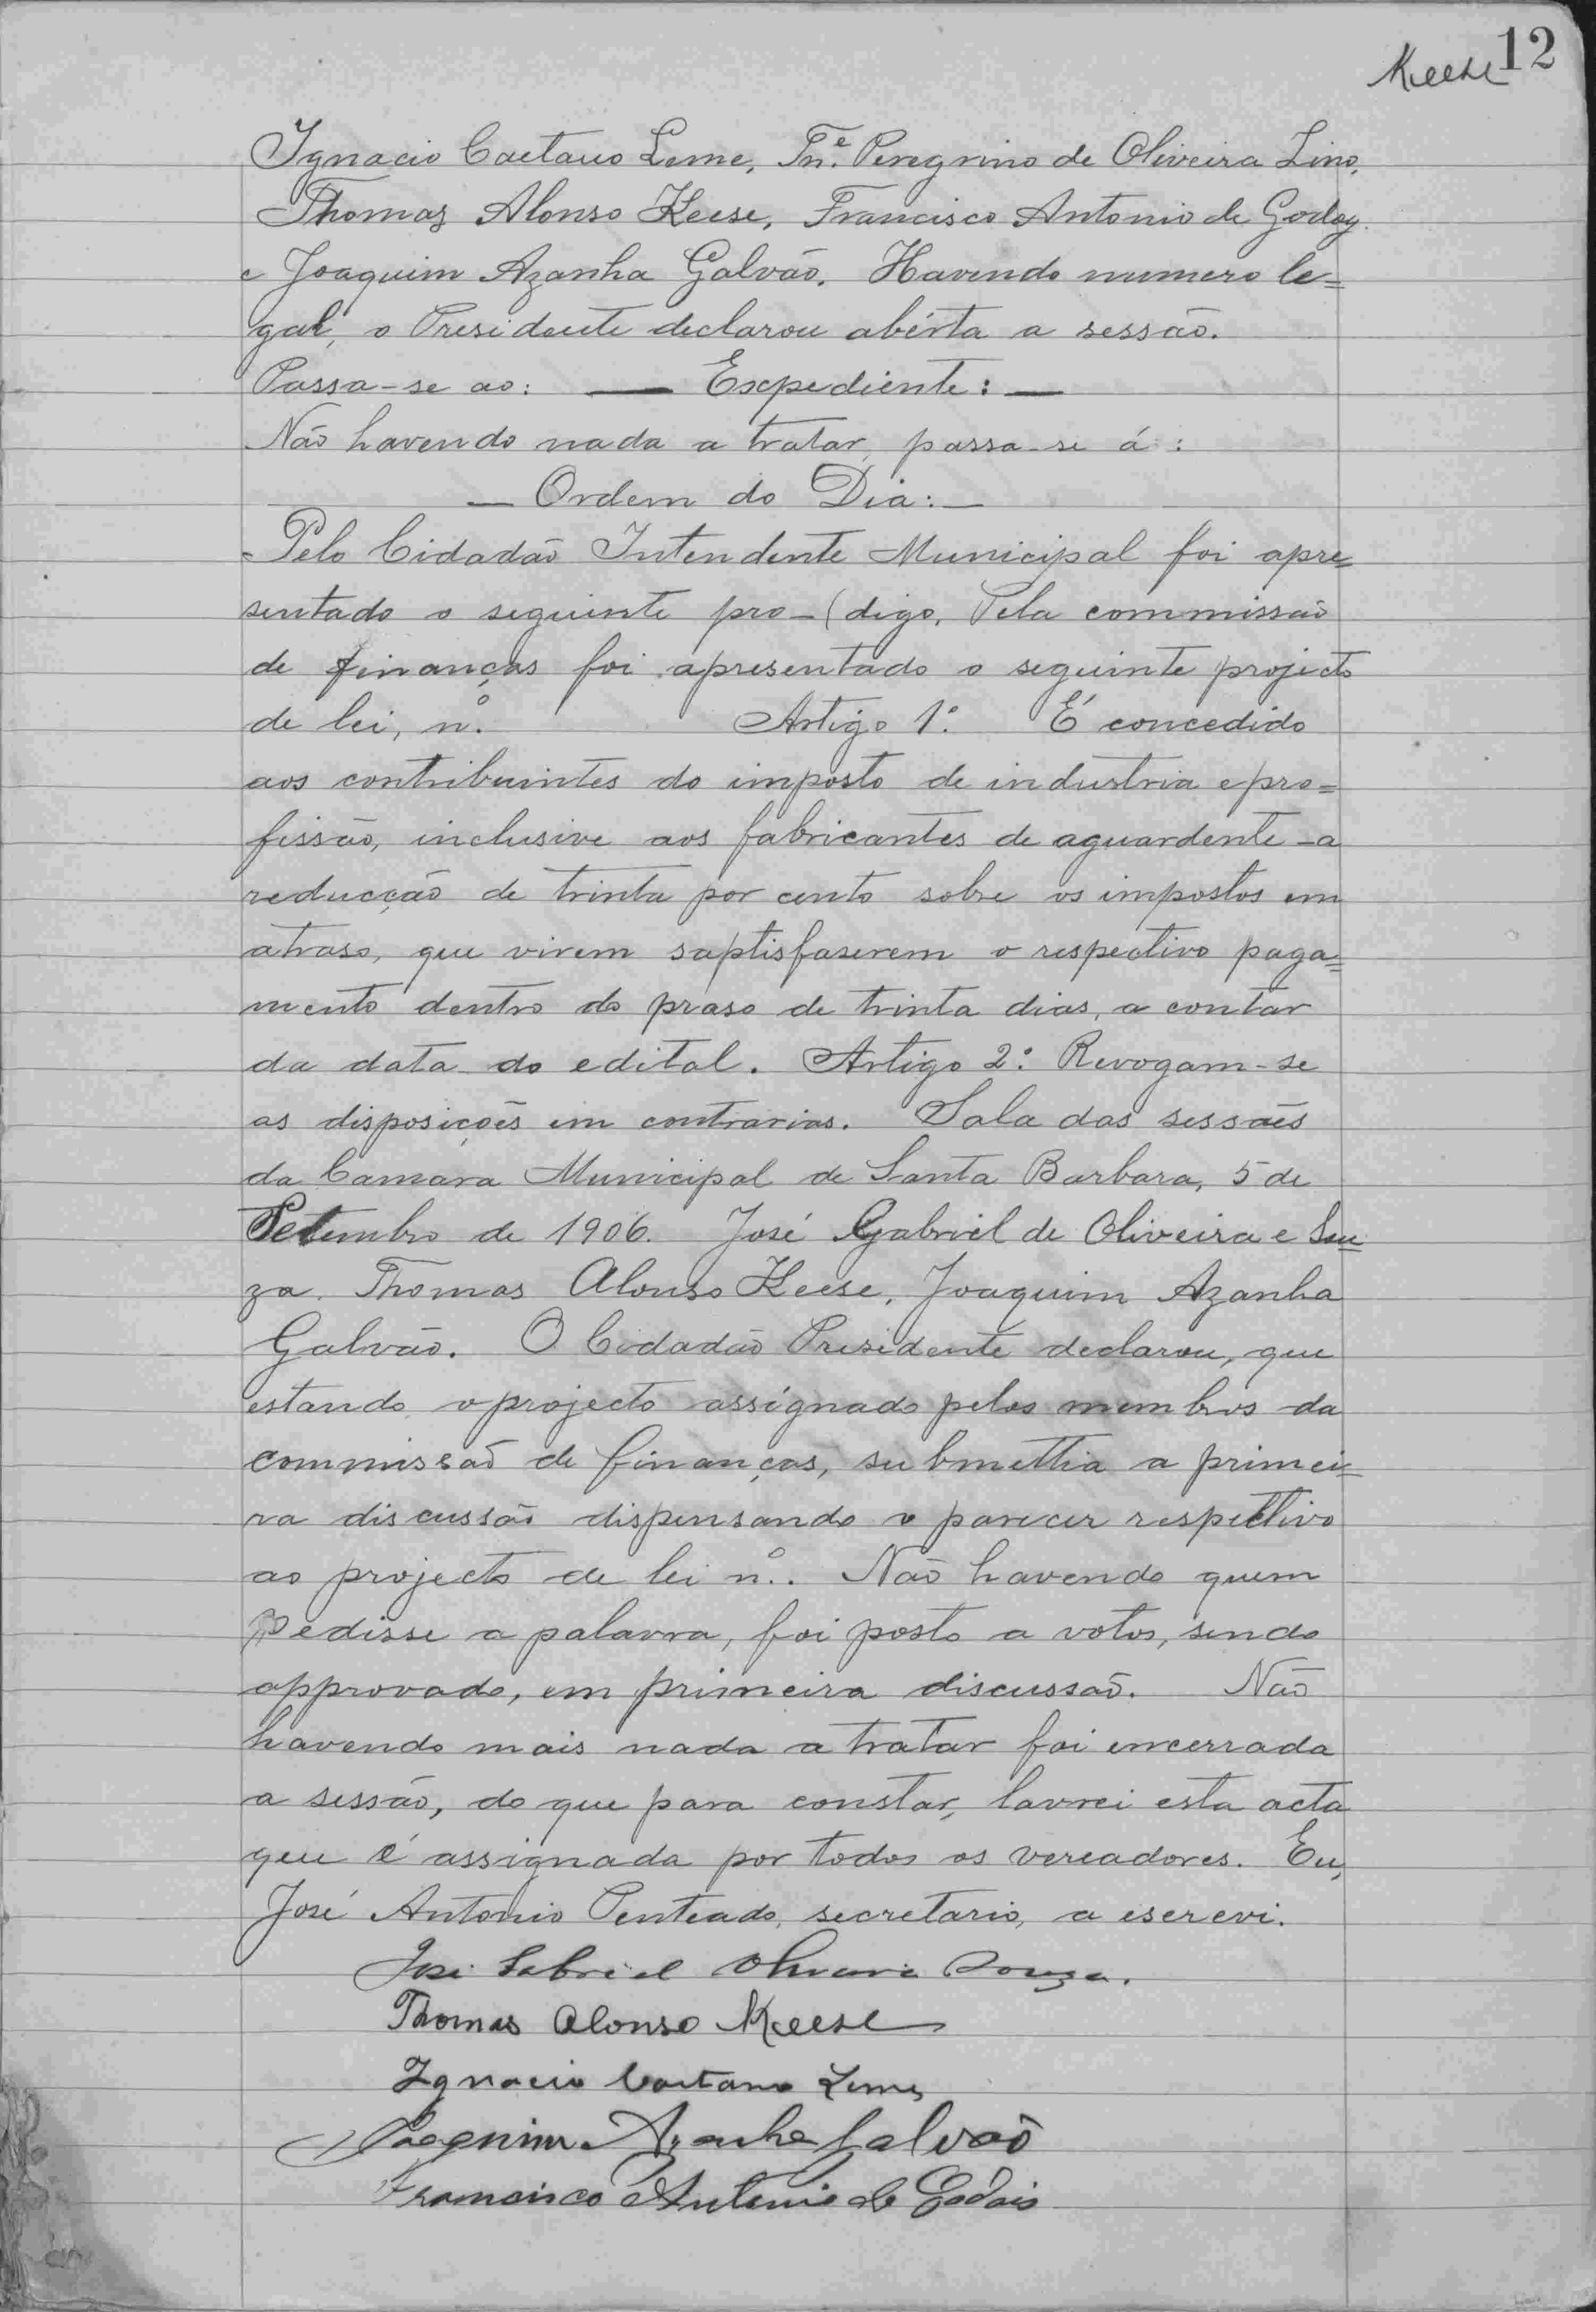 12
Keese
Ignacio Caetano Leme, Tnᵉ. Peregrino de Oliveira Lino,
Thomaz Alonso Keese, Francisco Antonio de Godoy
e Joaquim Azanha Galvão. Havendo numero le=
gal, o Presidente declarou abérta a sessão.
Passa-se ao: — Expediente: —
Não havendo nada a tratar, passa-se á:
— Ordem do Dia: —
Pelo Cidadão Intendente Municipal foi apre=
sentado o seguinte pro-(digo, Pela commissão
de finanças foi apresentado o seguinte projecto
de lei, nº. Artigo 1º. É concedido
aos contribuintes do imposto de industria e pro=
fissão, inclusive aos fabricantes de aguardente - a
reducção de trinta por cento sobre os impostos em
atraso, que virem saptisfaserem o respectivo paga=
mento dentro do praso de trinta dias, a contar
da data do edital. Artigo 2º. Revogam-se
as disposições em contrarias. Sala das sessões
da Camara Municipal de Santa Barbara, 5 de
Setembro de 1906. José Gabriel de Oliveira e Sou=
za. Thomas Alonso Keese, Joaquim Azanha
Galvão. O Cidadão Presidente declarou, que
estando o projecto assignado pelos membros da
commissão de finanças, submettia a primei=
ra discussão dispensando o parecer respectivo
ao projecto de lei nº.. Não havendo quem
pedisse a palavra, foi posto a votos, sendo
approvado, em primeira discussão. Não
havendo mais nada a tratar foi encerrada
a sessão, do que para constar, lavrei esta acta
que é assignada por todos os vereadores. Eu,
José Antonio Penteado, secretario, a escrevi.
José Gabriel Oliveira Souza.
Thomas Alonso Keese
Ignacio Caetano Leme
Joaquim Azanha Galvão
Francisco Antonio de Godois